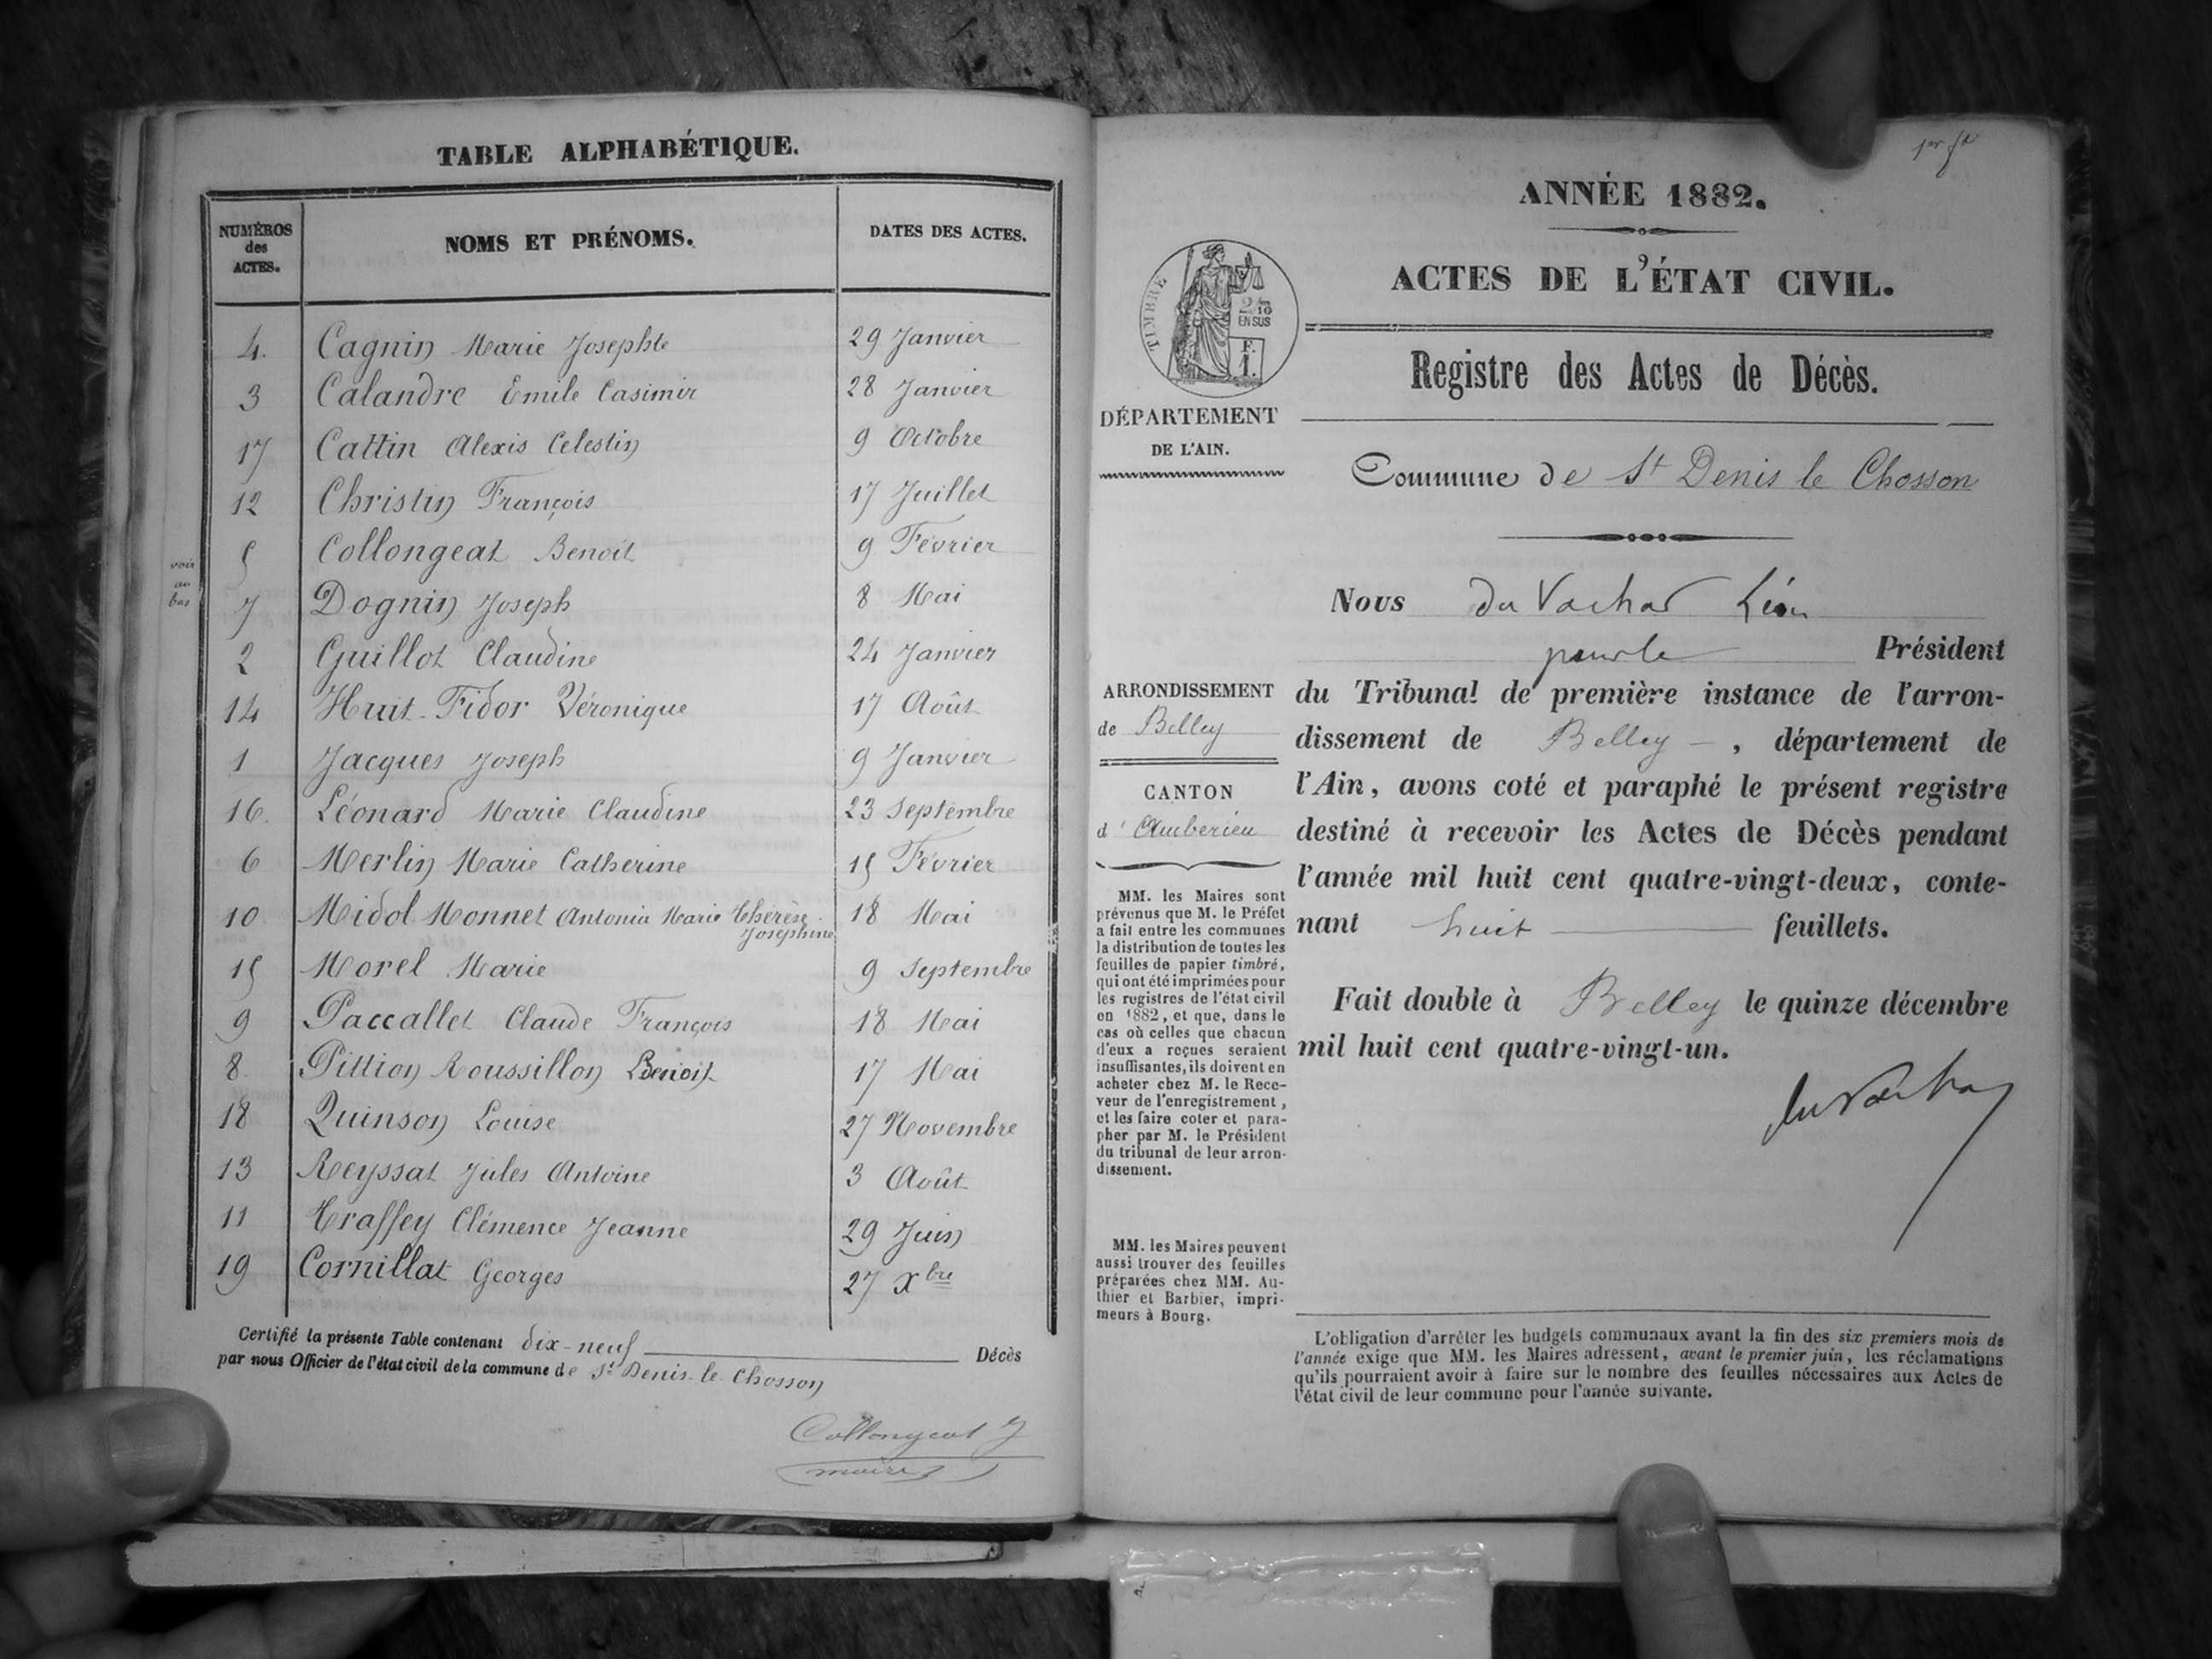 TABLE ALPHABÉTIQUE.
NUMÉROS des ACTES.
NOMS ET PRÉNOMS.
DATES DES ACTES.
4. Cagnin Marie Josephte 29 Janvier
3 Calandre Emile Casimir 28 Janvier
17 Cattin Alexis Celestin 9 Octobre
12 Christin François 17 Juillet
5 Collongeat Benoit 9 Février
voir
au
bas
7 Dognin Joseph 8 Mai
2 Guillot Claudine 24 Janvier
14 Huit-Fidor Véronique 17 Août
1 Jacques Joseph 9 Janvier
16. Léonard Marie Claudine 23 Septembre
6 Merlin Marie Catherine 15 Février
10 Midol Monnet Antonia Marie Thérèse 18 Mai
Joséphine
15 Morel Marie 9 Septembre
9 Paccallet Claude François 18 Mai
8. Pittion Roussillon Benoit 17 Mai
18 Quinson Louise 27 Novembre
13 Reyssat Jules Antoine 3 Août
11 Traffey Clémence Jeanne 29 Juin
19 Cornillat Georges 27 Xbre
Certifié la présente Table contenant dix-neuf Décès
par nous Officier de l'état civil de la commune de St Denis-le-Chosson
Collongeat J
maire
ANNÉE 1882.
ACTES DE L'ÉTAT CIVIL.
TIMBRE
2/10
EN SUS
F.
1.
Registre des Actes de Décès.
DÉPARTEMENT
DE L'AIN.
Commune de St Denis le Chosson
Nous du Vachat Léon
pour le Président
du Tribunal de première instance de l'arron-
dissement de Belley, département de
l'Ain, avons coté et paraphé le présent registre
destiné à recevoir les Actes de Décès pendant
l'année mil huit cent quatre-vingt-deux, conte-
nant huit feuillets.
Fait double à Belley le quinze décembre
mil huit cent quatre-vingt-un.
du Vachat
ARRONDISSEMENT
de Belley
CANTON
d'Amberieu
MM. les Maires sont
prévenus que M. le Préfet
a fait entre les communes
la distribution de toutes les
feuilles de papier timbré,
qui ont été imprimées pour
les registres de l'état civil
en 1882, et que, dans le
cas où celles que chacun
d'eux a reçues seraient
insuffisantes, ils doivent en
acheter chez M. le Rece-
veur de l'enregistrement,
et les faire coter et para-
pher par M. le Président
du tribunal de leur arron-
dissement.
MM. les Maires peuvent
aussi trouver des feuilles
préparées chez MM. Au-
thier et Barbier, impri-
meurs à Bourg.
L'obligation d'arrêter les budgets communaux avant la fin des six premiers mois de
l'année exige que MM. les Maires adressent, avant le premier juin, les réclamations
qu'ils pourraient avoir à faire sur le nombre des feuilles nécessaires aux Actes de
l'état civil de leur commune pour l'année suivante.